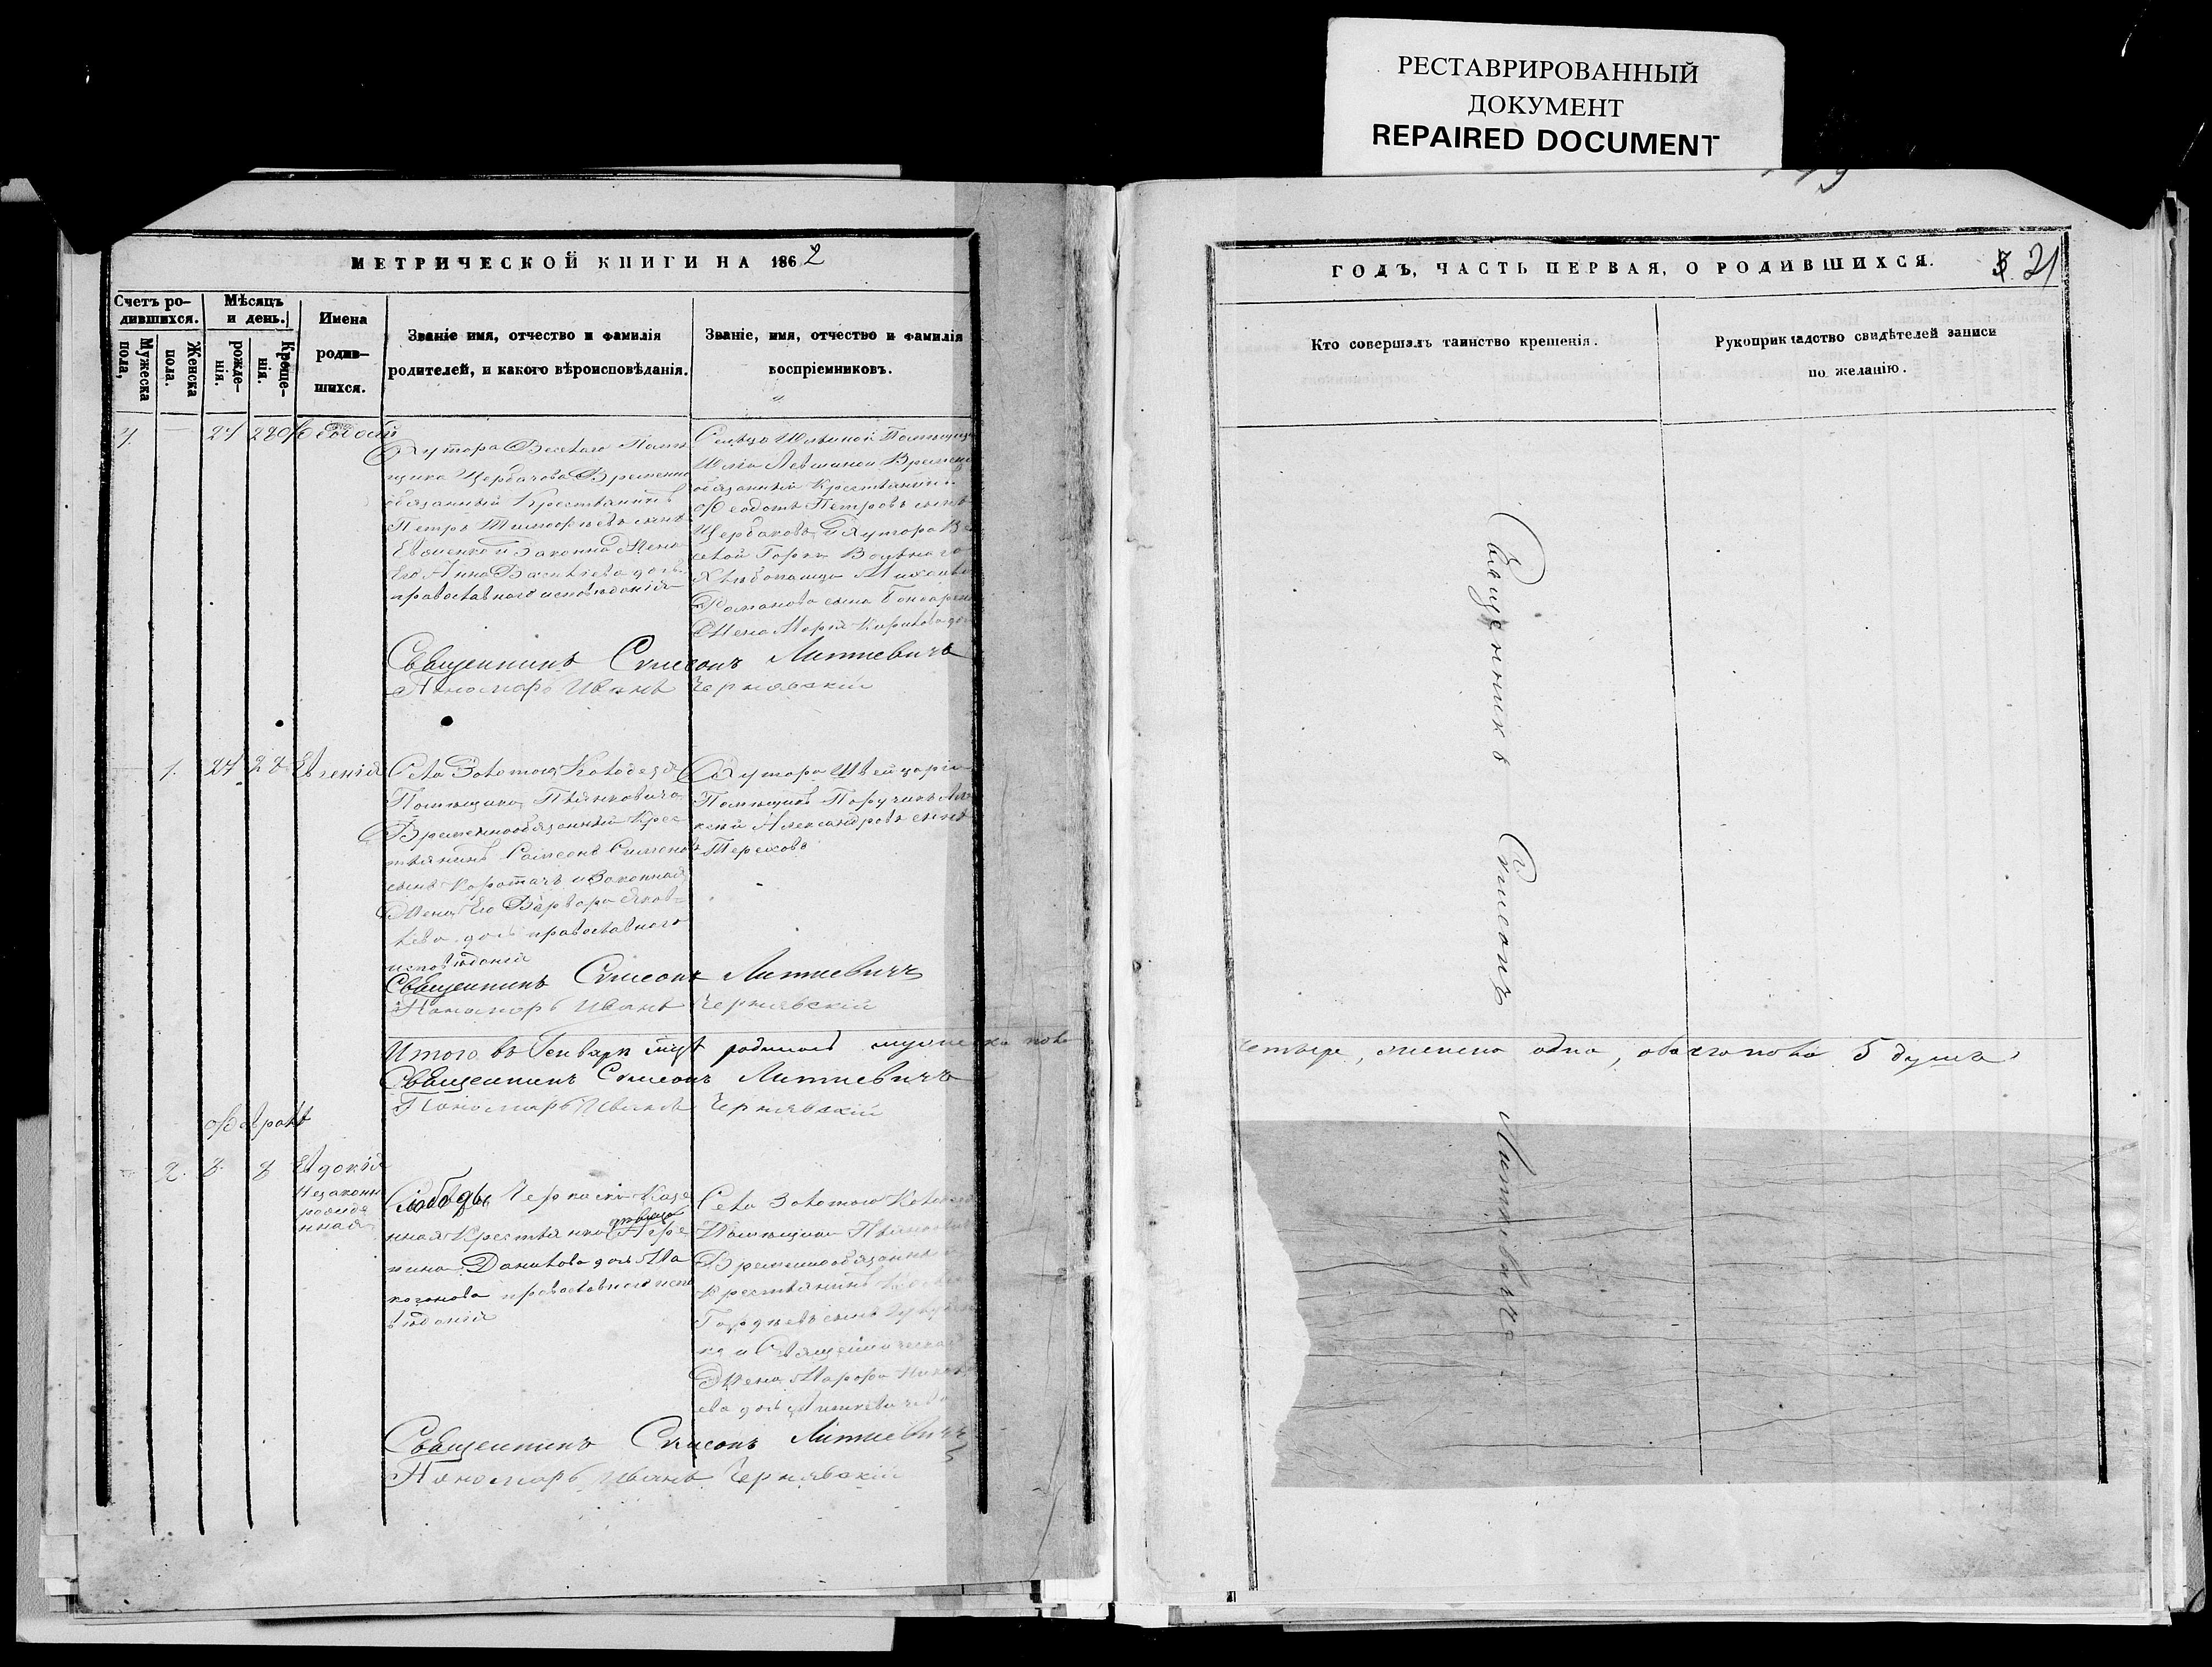 РЕСТАВРИРОВАННЫЙ
ДОКУМЕНТ
REPAIRED DOCUMENT
МЕТРИЧЕСКОЙ КНИГИ НА 1862
Счетъ ро-
дившихся.
Мужеска
пола,
Женска
пола.
Мѣсяцъ
и день.
рожде-
нія.
Креще-
нія.
Имена
родив-
шихся.
Званіе имя, отчество и фамилія
родителей, и какого вѣроисповѣданія.
Званіе, имя, отчество и фамилія
воспріемниковъ.
Хутора Веселаго Помѣ
щика Щербачова Временно
обязанный Крестьянинъ
Петръ Тимофѣевъ сынъ
и Законна Жена
Его Анна Васильева дочь
православнаго исповѣданія
Помѣщицы
Левшиной Времен
обязанный Крестьянинъ
Феодотъ Петровъ сынъ
Щербаковъ Хутора Ве
селой Горки Вольнаго
Хлѣбопашца Михаила
Романова сына Гончарен
Жена Марія Кирилова до
Священникъ Симеонъ Литкевичъ
Пономарь Иванъ Чернявскій
1. 27 28 Евгенія
Села Золотого Колодезя
Помѣщика
Временнообязанный Крес
тьянинъ Самсонъ Симеоновъ
сынъ и Законная
Жена Его Варвара Яков-
лева дочь православнаго
исповѣданія
Хутора Швейцаріи
Помѣщикъ Поручикъ Але
ксѣй Александровъ сынъ
Тереховъ
Священникъ Симеонъ Литкевичъ
Пономарь Иванъ Чернявскій
Итого въ Генварѣ мцѣ родилось мужеска пола
Священникъ Симеонъ Литкевичъ
Пономарь Иванъ Чернявскій
Февраль
2. 8 8 Евдокія
Незаконно
рожде
нная
Слободы Черкаской Казе
нная Крестьянка дѣвица Агри
пина Данилова дочь Ма
православнаго испо
вѣданія
Села Золотого Колодезя
Помѣщика
Временнообязанный
Крестьянинъ
Гордѣевъ сынъ
ко и Священническая
Жена Марфа
ева дочь Литкевичева
Священникъ Симеонъ Литкевичъ
Пономарь Иванъ Чернявскій
ГОДЪ, ЧАСТЬ ПЕРВАЯ, О РОДИВШИХСЯ. 21
Кто совершалъ таинство крещенія.
Рукоприкладство свидѣтелей записи
по желанію.
Священникъ Симеонъ Литкевичъ
четыре, женска одна, обоего пола 5 душъ